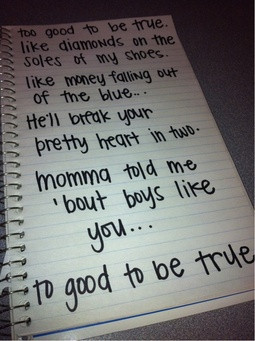 too good to be true.
like diamonds on the
soles of my shoes.
like money falling out
of the blue...
He'll break your
pretty heart in two.
momma told me
'bout boys like
you...
to good to be true